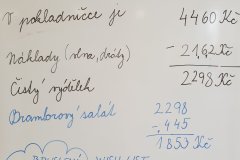 V pokladničce je 4460 Kč
Náklady (vlna, dráty) - 2162 Kč
Čistý výdělek 2298 Kč
Bramborový salát 2298
- 445
1853 Kč